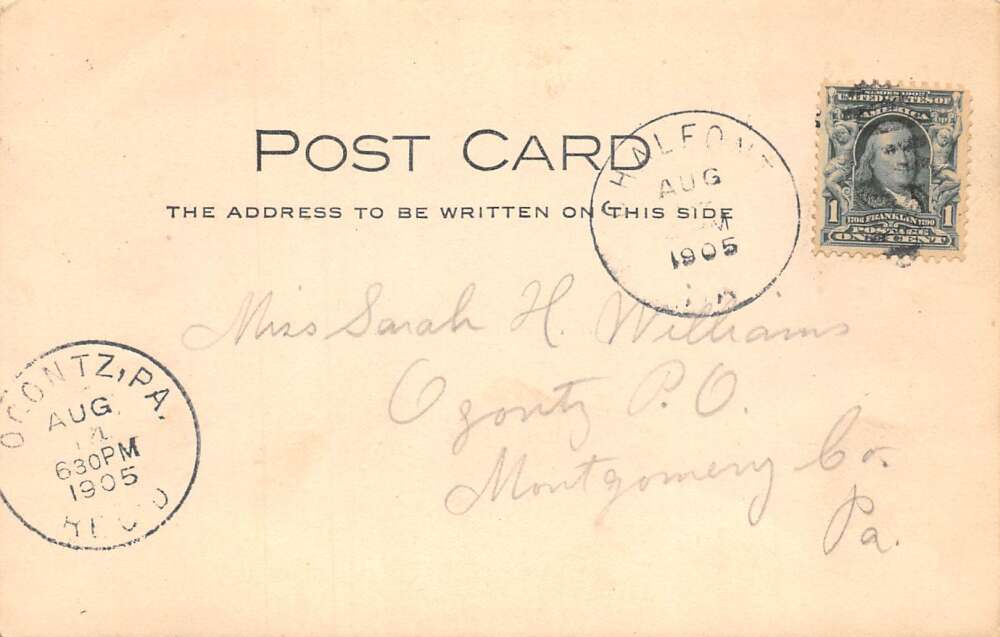 POST CARD
THE ADDRESS TO BE WRITTEN ON THIS SIDE
CHALFONT
AUG
M
1905
PA
UNITED STATES OF
AMERICA
1 1706 FRANKLIN 1790 1
POSTAGE
ONE CENT
Miss Sarah H. Williams
Ogontz P.O.
Montgomery Co.
Pa.
OGONTZ, PA.
AUG
630PM
1905
REC'D